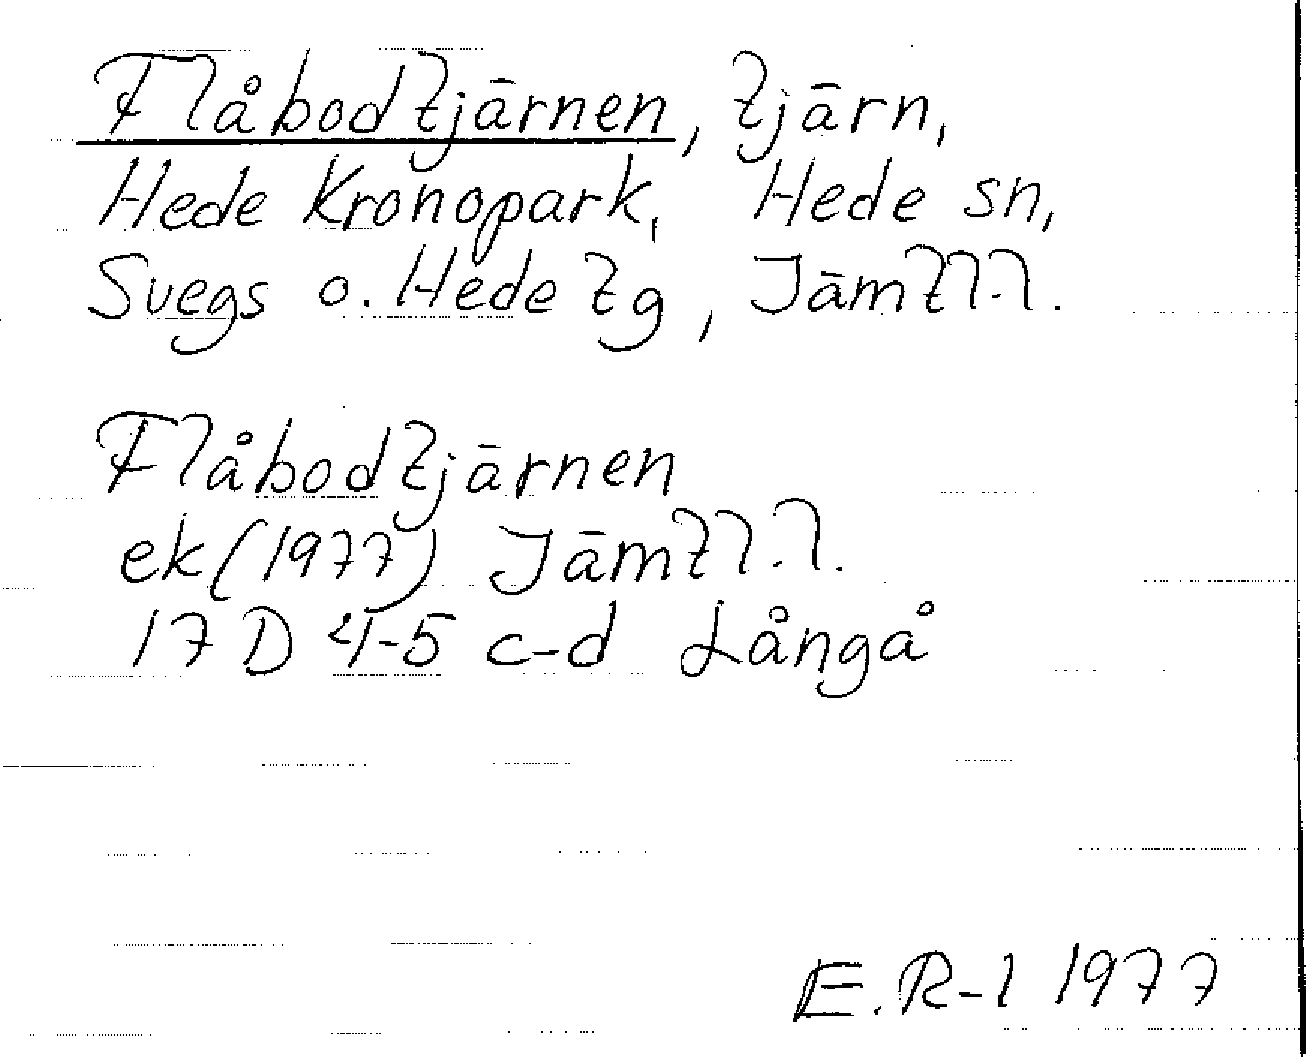 Flåbodtjärnen, tjärn,
Hede Kronopark, Hede sn,
Svegs o. Hede tg, Jämtl.l.
Flåbodtjärnen
ek (1977) Jämtl.l.
17 D 4-5 c-d Långå
E. R-l 1977